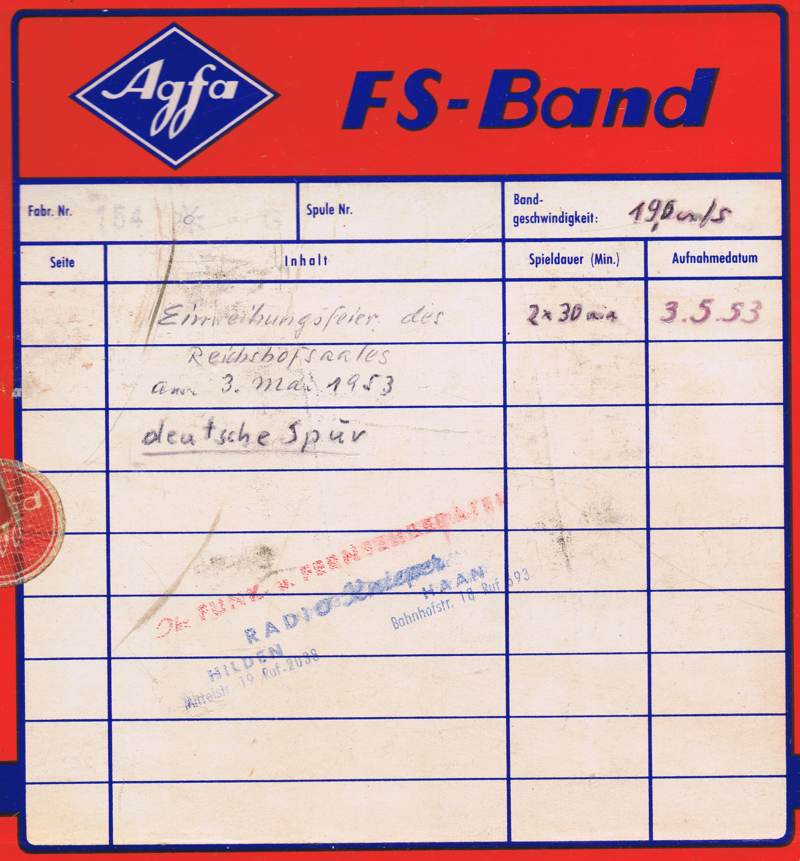 Agfa
FS-Band
Fabr. Nr.
Spule Nr.
Band-
geschwindigkeit: 19,0 cm/s
Seite
Inhalt
Spieldauer (Min.)
Aufnahmedatum
Einweihungsfeier des
2x30 min
3.5.53
Reichshofsaales
am 3. Mai 1953
deutsche Spur
Ihr FUNK- u. FERNSEHBERATER
RADIO Knieper
HILDEN
Mittelstr. 19 Ruf 2038
HAAN
Bahnhofstr. 18 Ruf 593